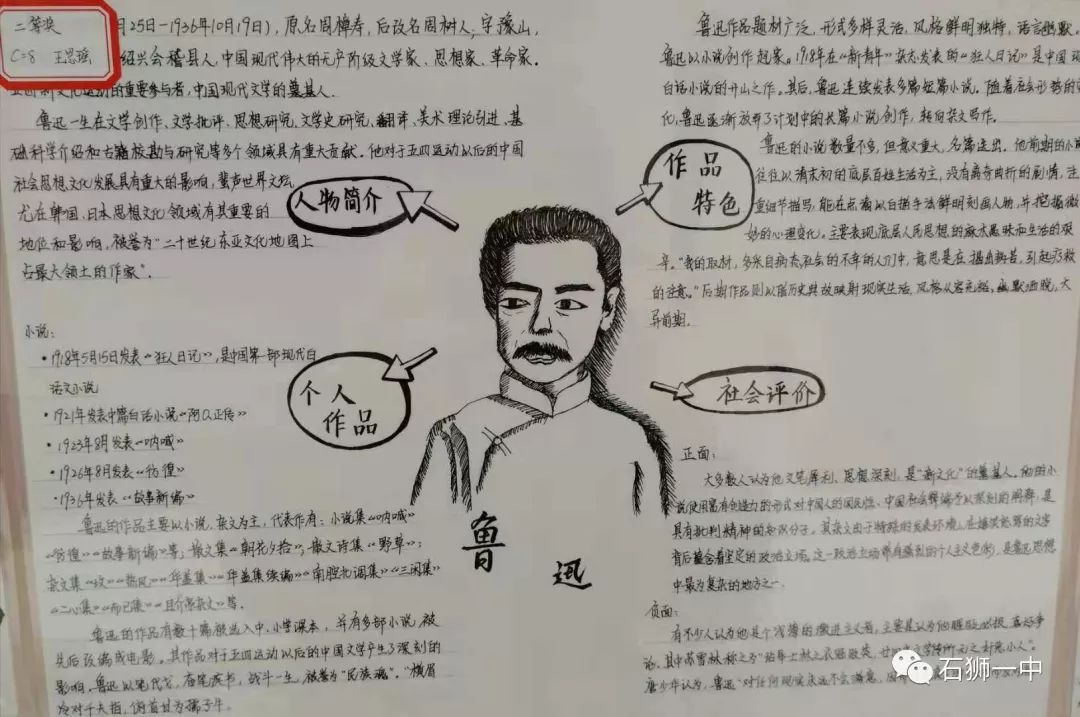 二等奖
C=8 王思瑶
月25日-1936年10月19日），原名周樟寿，后改名周树人，字豫山，
绍兴会稽县人，中国现代伟大的无产阶级文学家、思想家、革命家。
新文化运动的重要参与者，中国现代文学的墓基人。
鲁迅一生在文学创作、文学批评、思想研究、文学史研究、翻译、美术理论引进、基
础科学介绍和古籍校勘与研究等多个领域具有重大贡献。他对于五四运动以后的中国
社会思想文化发展具有重大的影响，蜚声世界文坛，
尤在韩国、日本思想文化领域有其重要的
地位和影响，被誉为“二十世纪东亚文化地图上
占最大领土的作家”。
人物简介
小说：
·1918年5月15日发表《狂人日记》，是中国第一部现代白
话文小说
·1921年发表中篇白话小说《阿Q正传》
·1923年8月发表《呐喊》
·1926年8月发表《彷徨》
·1936年发表《故事新编》
鲁迅的作品主要以小说、杂文为主，代表作有：小说集《呐喊》
《彷徨》《故事新编》等；散文集《朝花夕拾》；散文诗集《野草》；
杂文集《坟》《热风》《华盖集》《华盖集续编》《南腔北调集》《三闲集》
《二心集》《而已集》《且介亭杂文》等。
鲁迅的作品有数十篇被选入中、小学课本，并有多部小说被
先后改编成电影。其作品对于五四运动以后的中国文学产生了深刻的
影响。鲁迅以笔代戈，奋笔疾书，战斗一生，被誉为“民族魂”。“横眉
冷对千夫指，俯首甘为孺子牛。
个人
作品
鲁迅
鲁迅作品题材广泛，形式多样灵活，风格鲜明独特，语言幽默。
鲁迅以小说创作起家。1918年在《新青年》杂志发表的《狂人日记》是中国现
白话小说的开山之作。其后，鲁迅连续发表多篇短篇小说。随着社会形势的
化，鲁迅逐渐放弃了计划中的长篇小说创作，转向杂文写作。
鲁迅的小说数量不多，但意义重大，名篇迭出。他前期的小说
往往以清末初的底层百姓生活为主，没有离奇曲折的剧情，注
重细节描写，能在点滴以白描手法鲜明刻画人物，并挖掘微
妙的心理变化。主要表现底层人民思想的麻木愚昧和生活的艰
辛。“我的取材，多采自病态社会的不幸的人们中，意思是在揭出病苦，引起疗救
的注意。”后期作品则以历史典故映射现实生活，风格从容充裕，幽默洒脱，大
异前期。
作品
特色
社会评价
正面：
大多数人认为他文笔犀利、思想深刻，是“新文化”的墓基人。他的小
说使用富有创造力的形式对中国人的国民性、中国社会弊端予以深刻的阐释，是
具有批判精神的知识分子。其杂文由于特殊的发表环境，在嬉笑怒骂的文字
背后蕴含着坚定的政治立场。这一政治立场带有强烈的个人主义色彩，是鲁迅思想
中最为复杂的地方之一。
负面：
有不少人认为他是个浅薄的激进主义者，主要是认为他睚眦必报、喜好争
论，其中苏雪林称之为“玷辱士林之衣冠败类，廿四史文学传所无之奸恶小人”。
唐少华认为，鲁迅“对任何现实永远不会满意，因
石狮一中